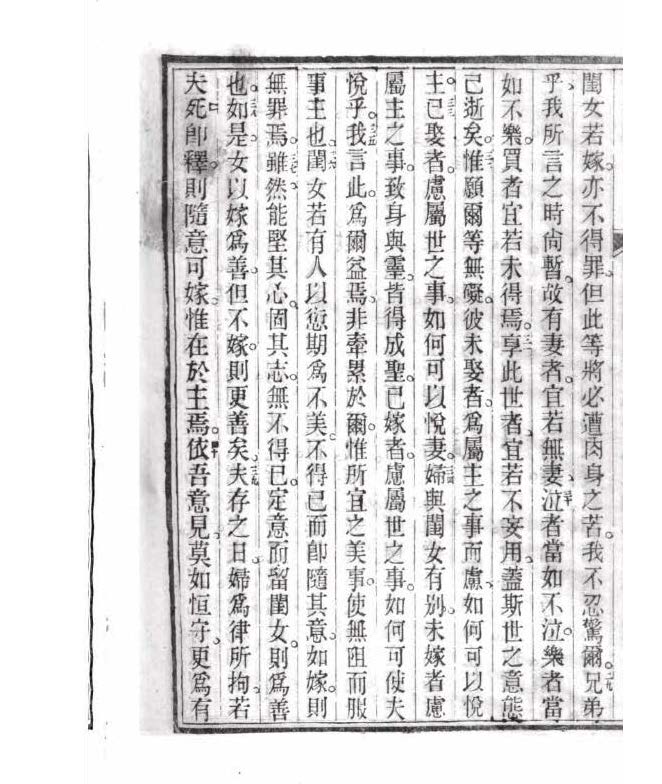 閨女若嫁亦不得罪但此等將必遭肉身之苦我不忍驚爾兄弟
乎我所言之時尙暫故有妻者宜若無妻泣者當如不泣樂者當
如不樂買者宜若未得焉享此世者宜若不妄用蓋斯世之意態
已逝矣惟願爾等無礙彼未娶者爲屬主之事而慮如何可以悅
主已娶者慮屬世之事如何可以悅妻婦與閨女有別未嫁者慮
屬主之事致身與靈皆得成聖已嫁者慮屬世之事如何可使夫
悅乎我言此爲爾益焉非牽累於爾惟所宜之美事使無阻而服
事主也閨女若有人以愆期爲不美不得已而卽隨其意如嫁則
無罪焉雖然能堅其心固其志無不得已定意而留閨女則爲善
也如是女以嫁爲善但不嫁則更善矣夫存之日婦爲律所拘若
夫死卽釋則隨意可嫁惟在於主焉依吾意見莫如恒守更爲有